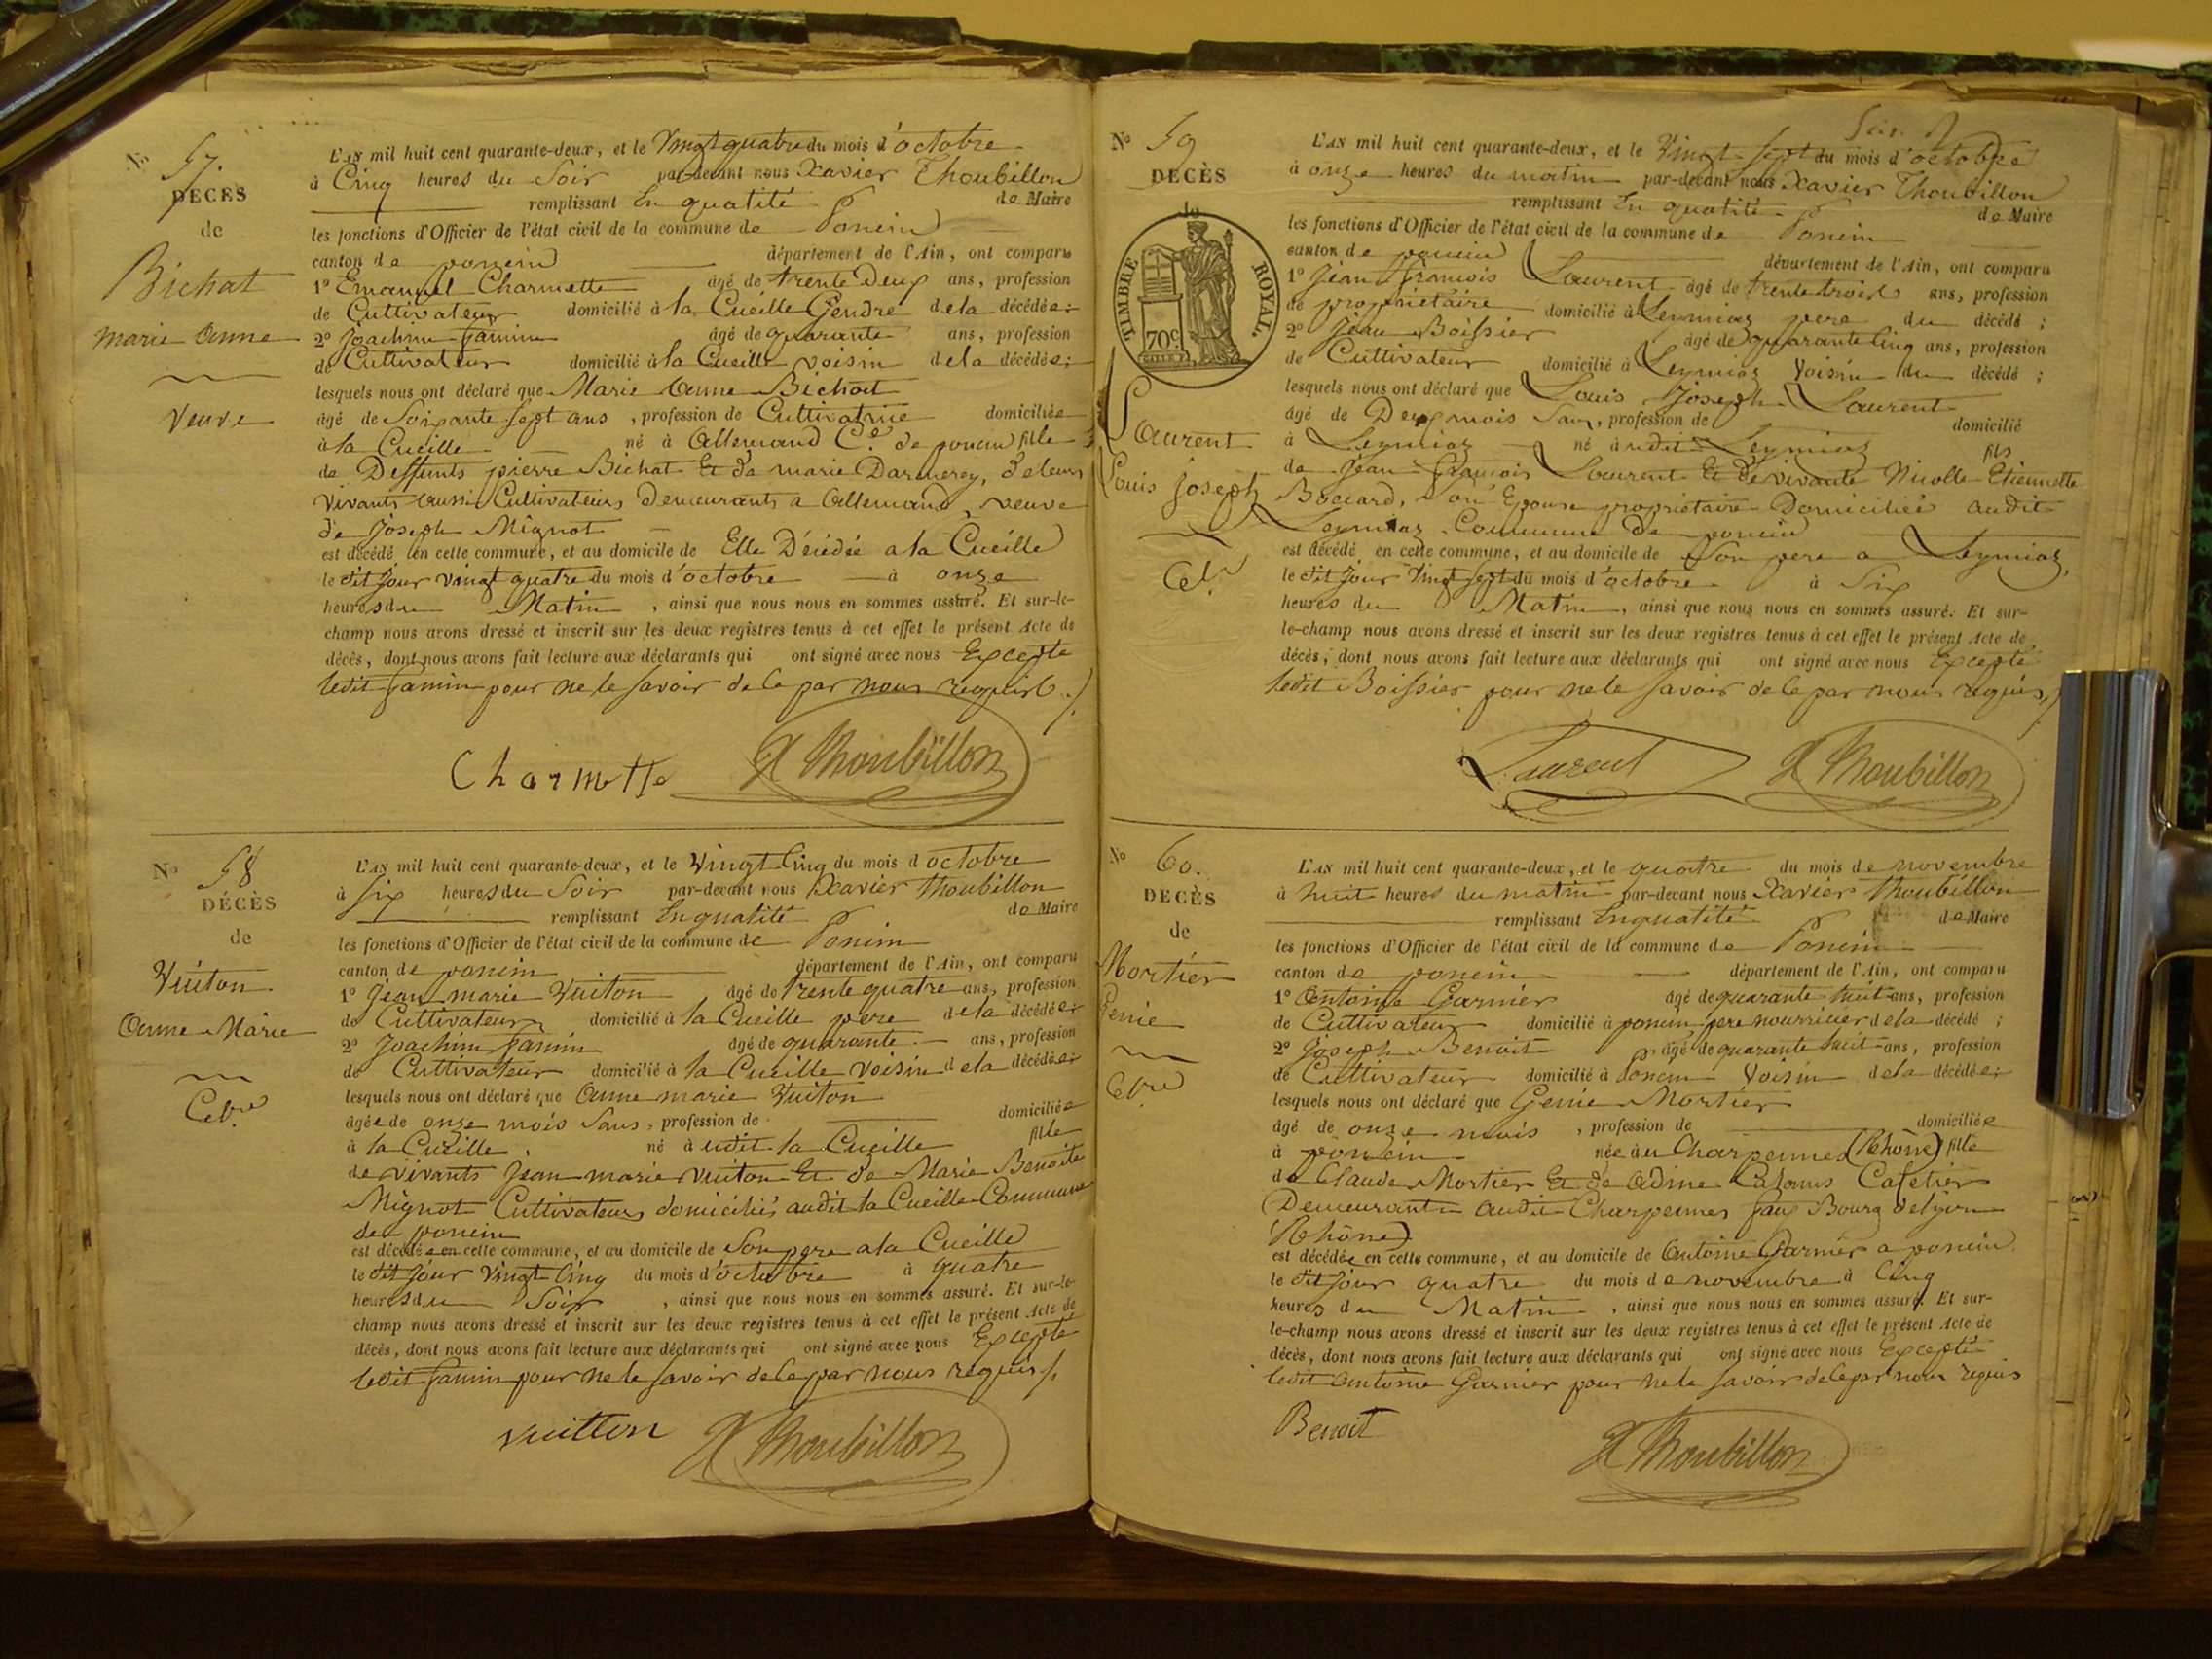 N° 57.
DÉCÈS
de
Bichat
marie Anne
Veuve
L'AN mil huit cent quarante-deux, et le Vingt quatre du mois d'octobre
à Cinq heures du Soir par-devant nous Xavier Thoubillon
remplissant En qualité de Maire
les fonctions d'Officier de l'état civil de la commune de Poncin
canton de poncin département de l'Ain, ont comparu
1° Emanuel Charmette âgé de trente Deux ans, profession
de Cultivateur domicilié à la Cueille Gendre de la décédée;
2° Joachim Jamin âgé de quarante ans, profession
de Cultivateur domicilié à la Cueille voisin de la décédée;
lesquels nous ont déclaré que Marie Anne Bichat
âgé de Soixante sept ans, profession de Cultivatrice domiciliée
à la Cueille né à Allemand Cne de poncin fille
de Deffunts pierre Bichat Et de marie Darmerey, de leurs
vivants aussi Cultivateurs Demeurants a Allemand, veuve
de Joseph Mignot
est décédé en cette commune, et au domicile de Elle Décédée a la Cueille
le dit jour vingt quatre du mois d'octobre à onze
heures du Matin, ainsi que nous nous en sommes assuré. Et sur-le-
champ nous avons dressé et inscrit sur les deux registres tenus à cet effet le présent Acte de
décès, dont nous avons fait lecture aux déclarants qui ont signé avec nous Excepte
ledit Jamin pour ne le savoir de ce par nous requis ./.
Charmette X Thoubillon
N° 58
DÉCÈS
de
Vuiton.
Anne Marie
Celre
L'AN mil huit cent quarante-deux, et le Vingt Cinq du mois d octobre
à six heures du Soir par-devant nous Xavier Thoubillon
remplissant En qualité de Maire
les fonctions d'Officier de l'état civil de la commune de Poncin
canton de poncin département de l'Ain, ont comparu
1° Jean marie Vuiton âgé de trente quatre ans, profession
de Cultivateur domicilié à la Cueille pere de la décédée;
2° Joachim Jamin âgé de quarante ans, profession
de Cultivateur domicilié à la Cueille voisin de la décédée;
lesquels nous ont déclaré que Anne marie Vuiton
âgée de onze mois Sans, profession de domiciliée
à la Cueille. né à udit la Cueille fille
de vivants Jean marie Vuiton Et de Marie Benoite
Mignot Cultivateurs domiciliés audit la Cueille Commune
de poncin
est décédée en cette commune, et au domicile de Son pere a la Cueille
le dit jour vingt Cinq du mois d'octobre à quatre
heures du Soir, ainsi que nous nous en sommes assuré. Et sur-le-
champ nous avons dressé et inscrit sur les deux registres tenus à cet effet le présent Acte de
décès, dont nous avons fait lecture aux déclarants qui ont signé avec nous Excepte
ledit Jamin pour ne le savoir de ce par nous requis ./.
vuitton X Thoubillon
N° 59
DÉCÈS
de
TIMBRE ROYAL.
70c.
Laurent
Louis Joseph
Celre
L'AN mil huit cent quarante-deux, et le Vingt Sept du mois d'octobre
à onze heures du matin par-devant nous Xavier Thoubillon
remplissant En qualité de Maire
les fonctions d'Officier de l'état civil de la commune de Poncin
canton de poncin département de l'Ain, ont comparu
1° Jean François Laurent âgé de trente trois ans, profession
de propriétaire domicilié à Leymiaz pere du décédé;
2° Jean Boissier âgé de quarante Cinq ans, profession
de Cultivateur domicilié à Leymiaz Voisin du décédé;
lesquels nous ont déclaré que Louis Joseph Laurent
âgé de Deux mois Sans, profession de domicilié
à Leymiaz né à udit Leymiaz fils
de Jean François Laurent Et de vivante Nicolle Etiennette
Bocard, Son Epouse propriétaire Domiciliée audit
Leymiaz Commune de poncin
est décédé en cette commune, et au domicile de Son pere a Leymiaz,
le dit jour Vingt sept du mois d'octobre à Six
heures du Matin, ainsi que nous nous en sommes assuré. Et sur-
le-champ nous avons dressé et inscrit sur les deux registres tenus à cet effet le présent Acte de
décès, dont nous avons fait lecture aux déclarants qui ont signé avec nous Excepté
ledit Boissier pour ne le savoir de ce par nous requis ./.
Laurent X Thoubillon
N° 60.
DÉCÈS
de
Mortier
Genie
Celre
L'AN mil huit cent quarante-deux, et le quatre du mois de novembre
à huit heures du matin par-devant nous Xavier Thoubillon
remplissant En qualité de Maire
les fonctions d'Officier de l'état civil de la commune de Poncin
canton de poncin département de l'Ain, ont comparu
1° Antoine Garnier âgé de quarante huit ans, profession
de Cultivateur domicilié à poncin pere nourricier de la décédé;
2° Joseph Benoit âgé de quarante huit ans, profession
de Cultivateur domicilié à Poncin Voisin de la décédée;
lesquels nous ont déclaré que Genie Mortier
âgé de onze mois, profession de domiciliée
à poncin née àu Charpennes (Rhône) fille
de Claude Mortier Et de Adine Cafetier
Demeurants audit Charpennes faux Bourg de lyon
(Rhône)
est décédée en cette commune, et au domicile de Antoine Garnier a poncin
le dit jour quatre du mois de novembre à Cinq
heures du Matin, ainsi que nous nous en sommes assuré. Et sur-
le-champ nous avons dressé et inscrit sur les deux registres tenus à cet effet le présent Acte de
décès, dont nous avons fait lecture aux déclarants qui ont signé avec nous Excepté
ledit Antoine Garnier pour ne le savoir de ce par nous requis
Benoit X Thoubillon